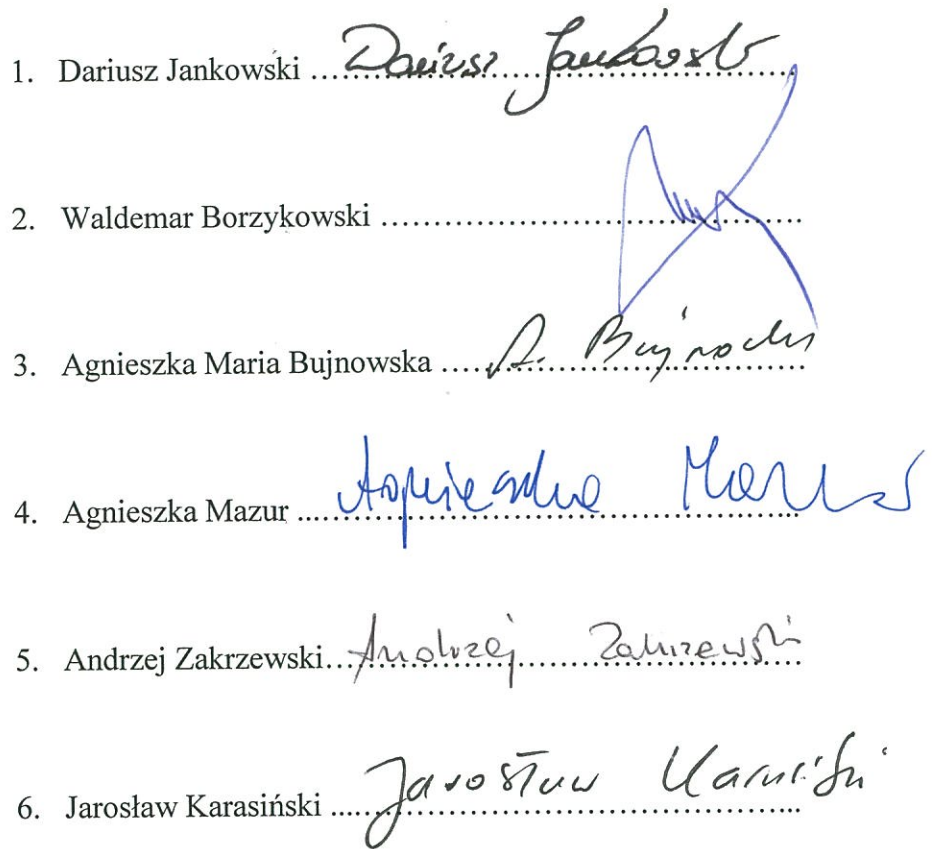 1. Dariusz Jankowski ... Dariusz Jankowski
2. Waldemar Borzykowski ...
3. Agnieszka Maria Bujnowska ... A. Bujnowska
4. Agnieszka Mazur ... Agnieszka Mazur
5. Andrzej Zakrzewski ... Andrzej Zakrzewski
6. Jarosław Karasiński ... Jarosław Karasiński